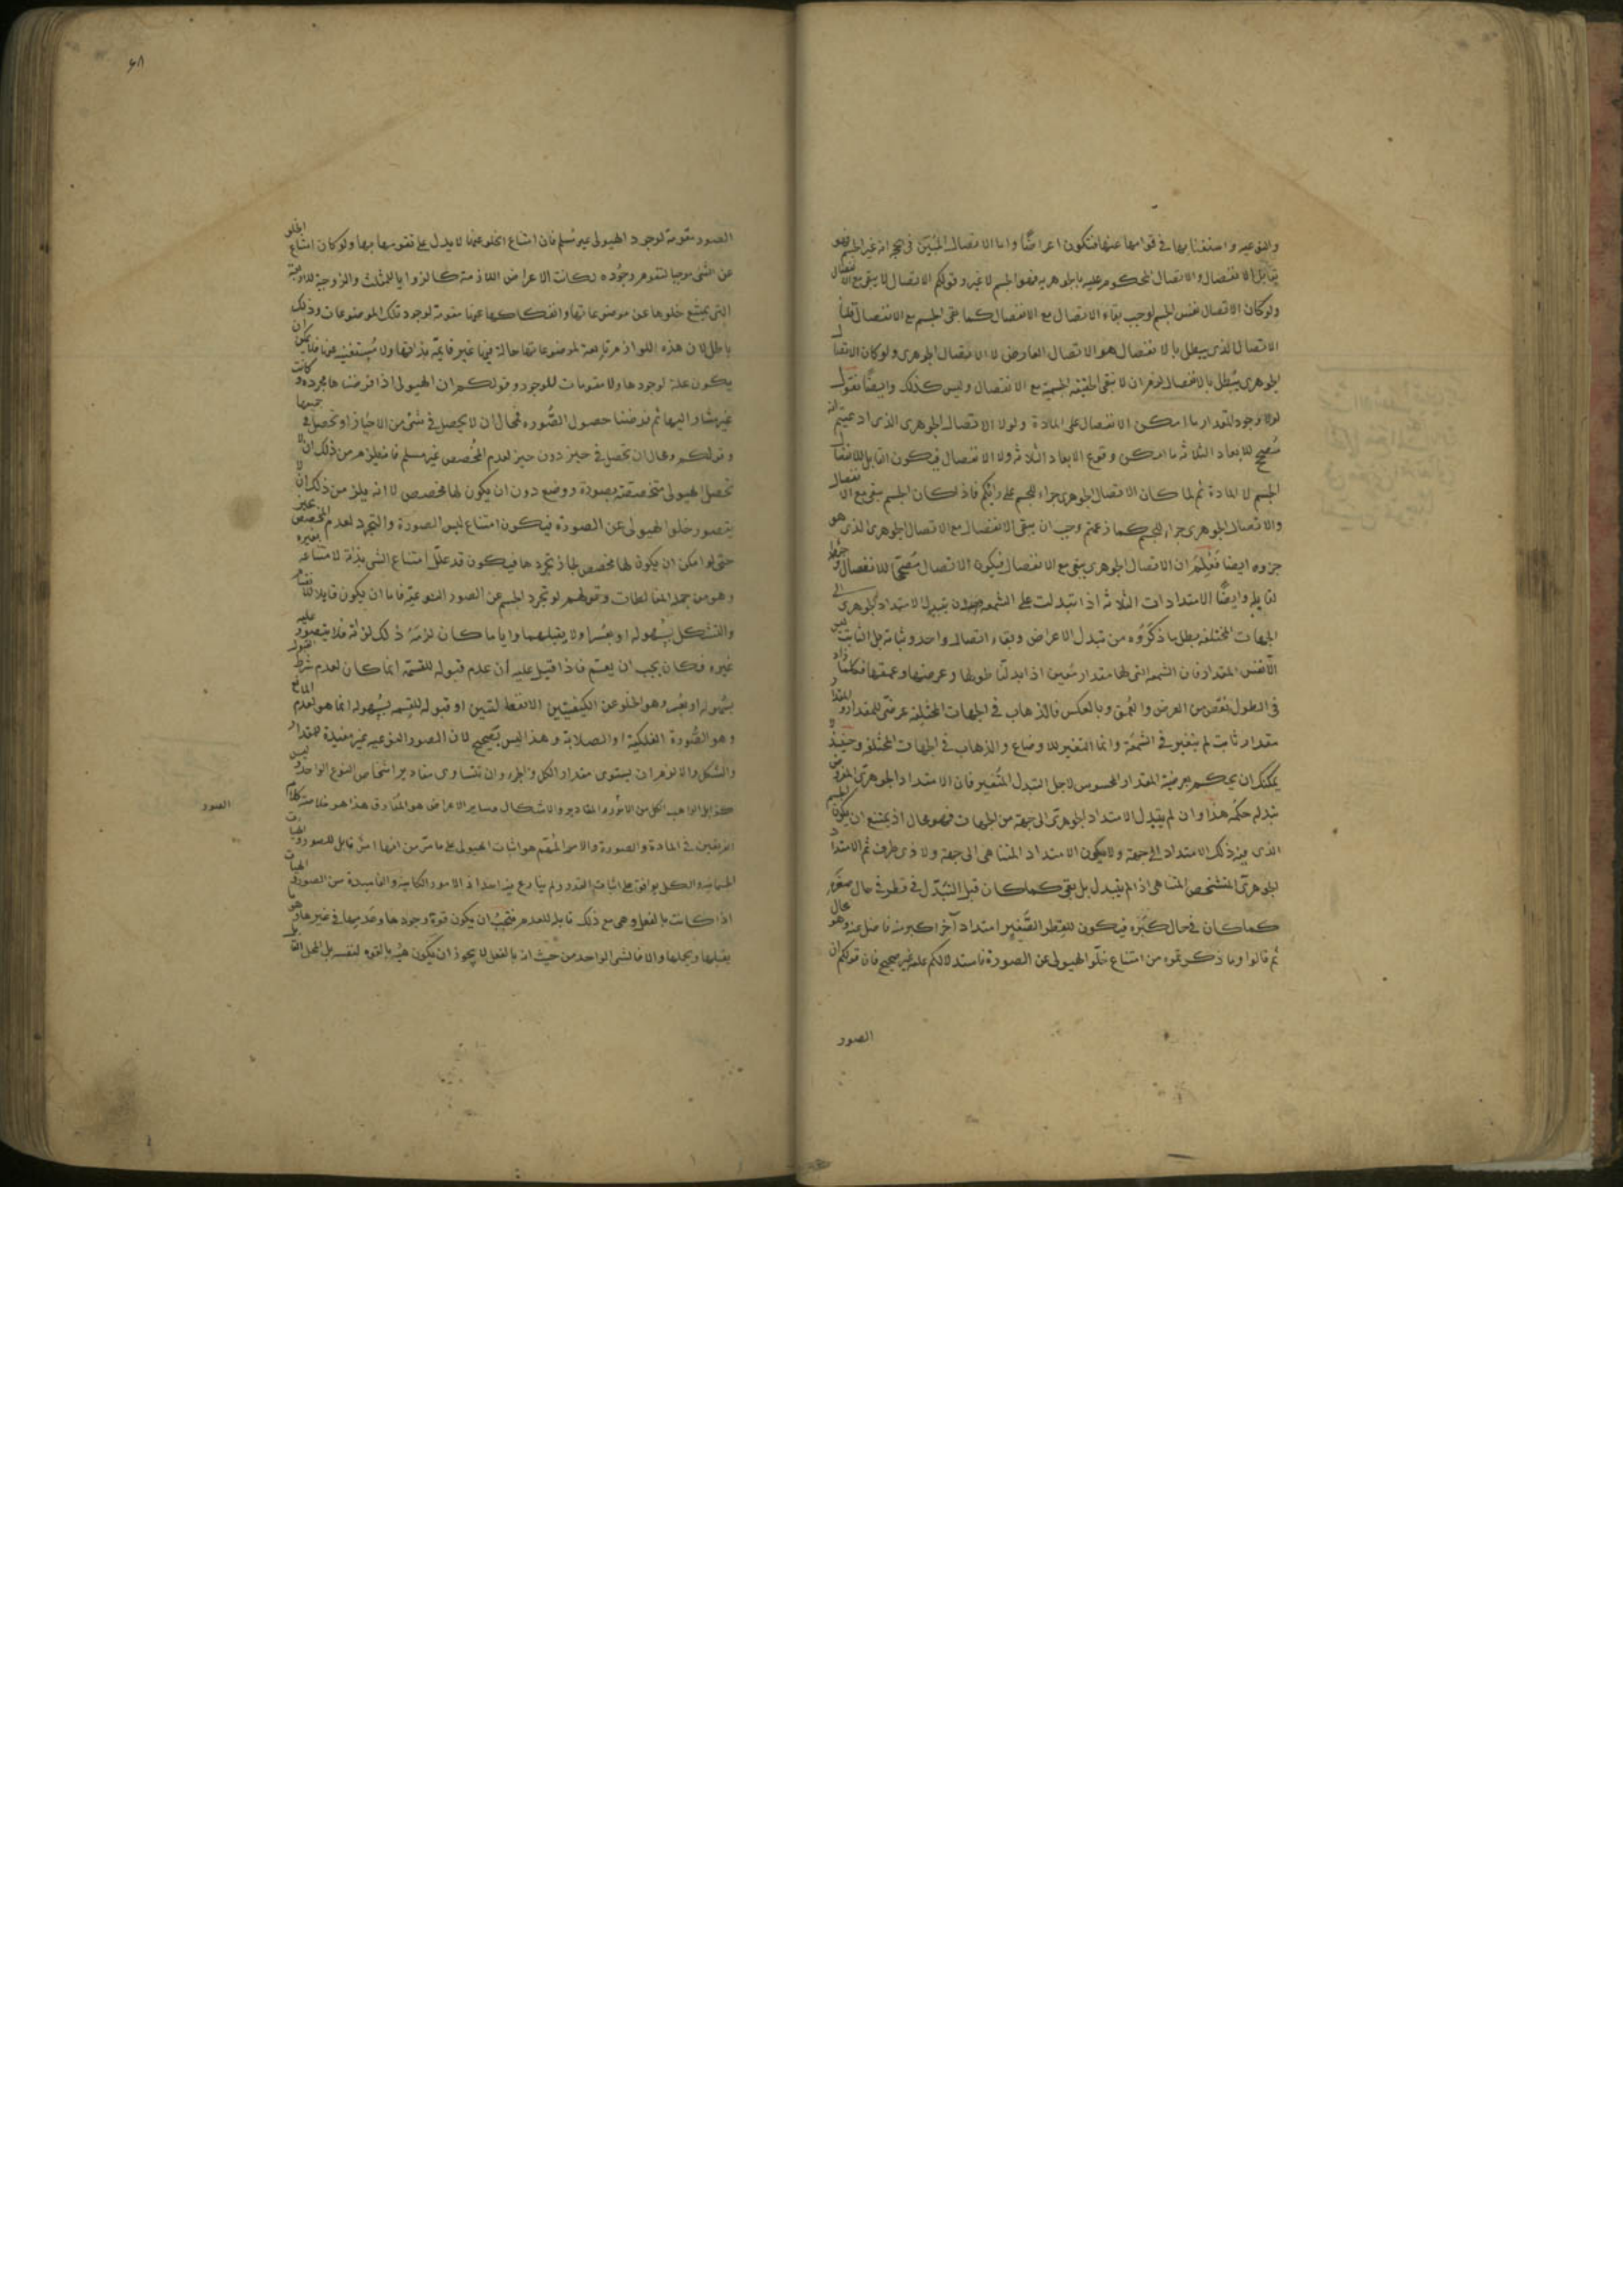 والنوعيه و استغنائها في قوامها عنها فتكون اعراضًا واما الاتصال المبيّن في انه غير الجسم فهو
يقابل الانفصال والاتصال المحكوم عليه بالجوهريه فهو الجسم لا غير وقولكم الاتصال لا يبقى مع الانفصال
ولو كان الاتصال نفس الجسم لوجب بقاء الاتصال مع الانفصال كما بقى الجسم مع الانفصال قلنا
الاتصال الذى يبطل بالانفصال هو الاتصال العارض لا الاتصال الجوهرى ولو كان الاتصال
الجوهرى يبطل بالانفصال لزم ان لا تبقى الحقيقة الجسمية مع الانفصال وليس كذلك وايضًا نقول
لولا وجود المقدار ما امكن الانفصال على المادة ولولا الاتصال الجوهرى الذى ادعيتم انه
مصحح للابعاد الثلاثه ما امكن وقوع الابعاد الثلاثه ولا الانفصال فيكون القابل للانفصال
الجسم لا المادة ثم لما كان الاتصال الجوهرى جزاء للجسم على رائيكم فاذا كان الجسم يبقى مع الانفصال
والاتصال الجوهرى جزاء للجسم كما زعمتم وجب ان يبقى الانفصال مع الاتصال الجوهرى الذى هو
جزوه ايضا فعلم ان الاتصال الجوهرى يبقى مع الانفصال فيكون الاتصال مصححًا للانفصال
لقابله وايضًا الامتدادات الثلاثه اذا تبدلت على الشمعه دون تبدل الامتداد الجوهرى الى
الجهات المختلفه بطل ما ذكروه من تبدل الاعراض وبقاء اتصال واحد وثباته بل الثابت ليس
الا نفس المقدار فان الشمعه التى لها مقدار معين اذا بدلنا طولها وعرضها وعمقها فكلما زاد
فى الطول نقص من العرض والعمق وبالعكس فالذهاب فى الجهات المختلفه عرضى للمقدار
مقدار ثابت لم يتغير فى الشمعة وانما المتغير للاوضاع والذهاب فى الجهات المختلفه وحينئذ لا
يمكنك ان يحكم بعرضية المقدار المحسوس لاجل التبدل المتغير فان الامتداد الجوهرى
تبدله حكمه هذا وان لم يتبدل الامتداد الجوهرى الى جهة من الجهات فهو محال اذ يمتنع ان يكون الجسم
الذى فيه ذلك الامتداد الى جهة ولا يكون الامتداد المتناهى الى جهة ولا ذى طرف ثم الامتداد
الجوهرى المتشخص المتناهى اذا لم يتبدل بل بقى كما كان قبل التبدل فى قطر فى حال صغره
كما كان فى حال كبره فيكون للقطر الصغير امتداد آخر اكبر منه فاضل عنه وهو محال
ثم قالوا وما ذكرتموه من امتناع خلو الهيولى عن الصورة فاستدلالكم عليه غير صحيح فان قولكم ان
الصور
٦٨
الصور مقومة لوجود الهيولى غير مسلم فان امتناع الخلو عنها لا يدل على تقومها بها ولو كان امتناع الخلو
عن الشى موجبا لتقوم وجوده لكانت الاعراض اللازمة كالزوايا للمثلث والزوجية للاربعة
التى يمتنع خلوها عن موضوعاتها وانفكاكها عنها مقومة لوجود تلك الموضوعات وذلك
باطل لان هذه اللوازم تابعة لموضوعاتها حالة فيها غير قايمة بذاتها ولا مستغنيه عنها فلا يمكن ان
يكون علة لوجودها ولا مقومات للوجود وقولكم ان الهيولى اذا فرضناها مجرده كانت
غير مشار اليها ثم فرضنا حصول الصوره فمحال ان لا يحصل فى شئ من الاحياز او تحصل فى جميعها
وقولكم ومحال ان تحصل فى حيز دون حيز لعدم المخصص غير مسلم فانه يلزم من ذلك ان لا
تحصل الهيولى متخصصة بصورة ووضع دون ان يكون لها مخصص لا انه يلزم من ذلك ان لا
يتصور خلو الهيولى عن الصورة فيكون امتناع لبس الصورة والتجرد لعدم المخصص
حتى لو امكن ان يكون لها مخصص لجاز تجردها فيكون قد علل امتناع الشى بذاته لامتناعه بغيره
وهو من جملة المغالطات وقولهم لو تجرد الجسم عن الصور النوعية فاما ان يكون قابلا للقسمة
والتشكل بسهوله او بعسر او لا يقبلهما وايا ما كان لزمه ذلك لذاته فلا يتصور عليه
غيره فكان يجب ان يعم فاذا قيل عليه ان عدم قبوله للقسمة انما كان لعدم شرط القبول
بسهوله او بعسر وهو الخلو عن الكيفيتين الانفعاليتين او قبوله للقسمه بسهوله انما هو لعدم المانع
وهو الصورة الفلكية او الصلابة وهذا ليس بصحيح لان الصور النوعيه غير مفيدة للمقدار
والشكل والا لزم ان يستوى مقدار الكل والجزء وان تتساوى مقادير اشخاص النوع الواحد وليس
كذا بل الواهب الكل من الامور والمقادير والاشكال وساير الاعراض هو المفارق هذا هو خلاصة كلام
الفريقين فى المادة والصورة والامر المهم هو اثبات الهيولى على ما مر من انها امر قابل للصور والهيئات
الجسمانيه والكل يوافق على اثبات هذا القدر ولم ينازع فيه احد اذ الامور الكاينة والفاسدة من الصور والهيئات
اذا كانت بالفعل وهى مع ذلك قابلة للعدم فيجب ان يكون قوة وجودها وعدمها فى غيرها وهو ما
يقبلها ويحملها والا فالشى الواحد من حيث انه بالفعل لا يجوز ان يكون هو بالقوه لنفسه بل
الصور